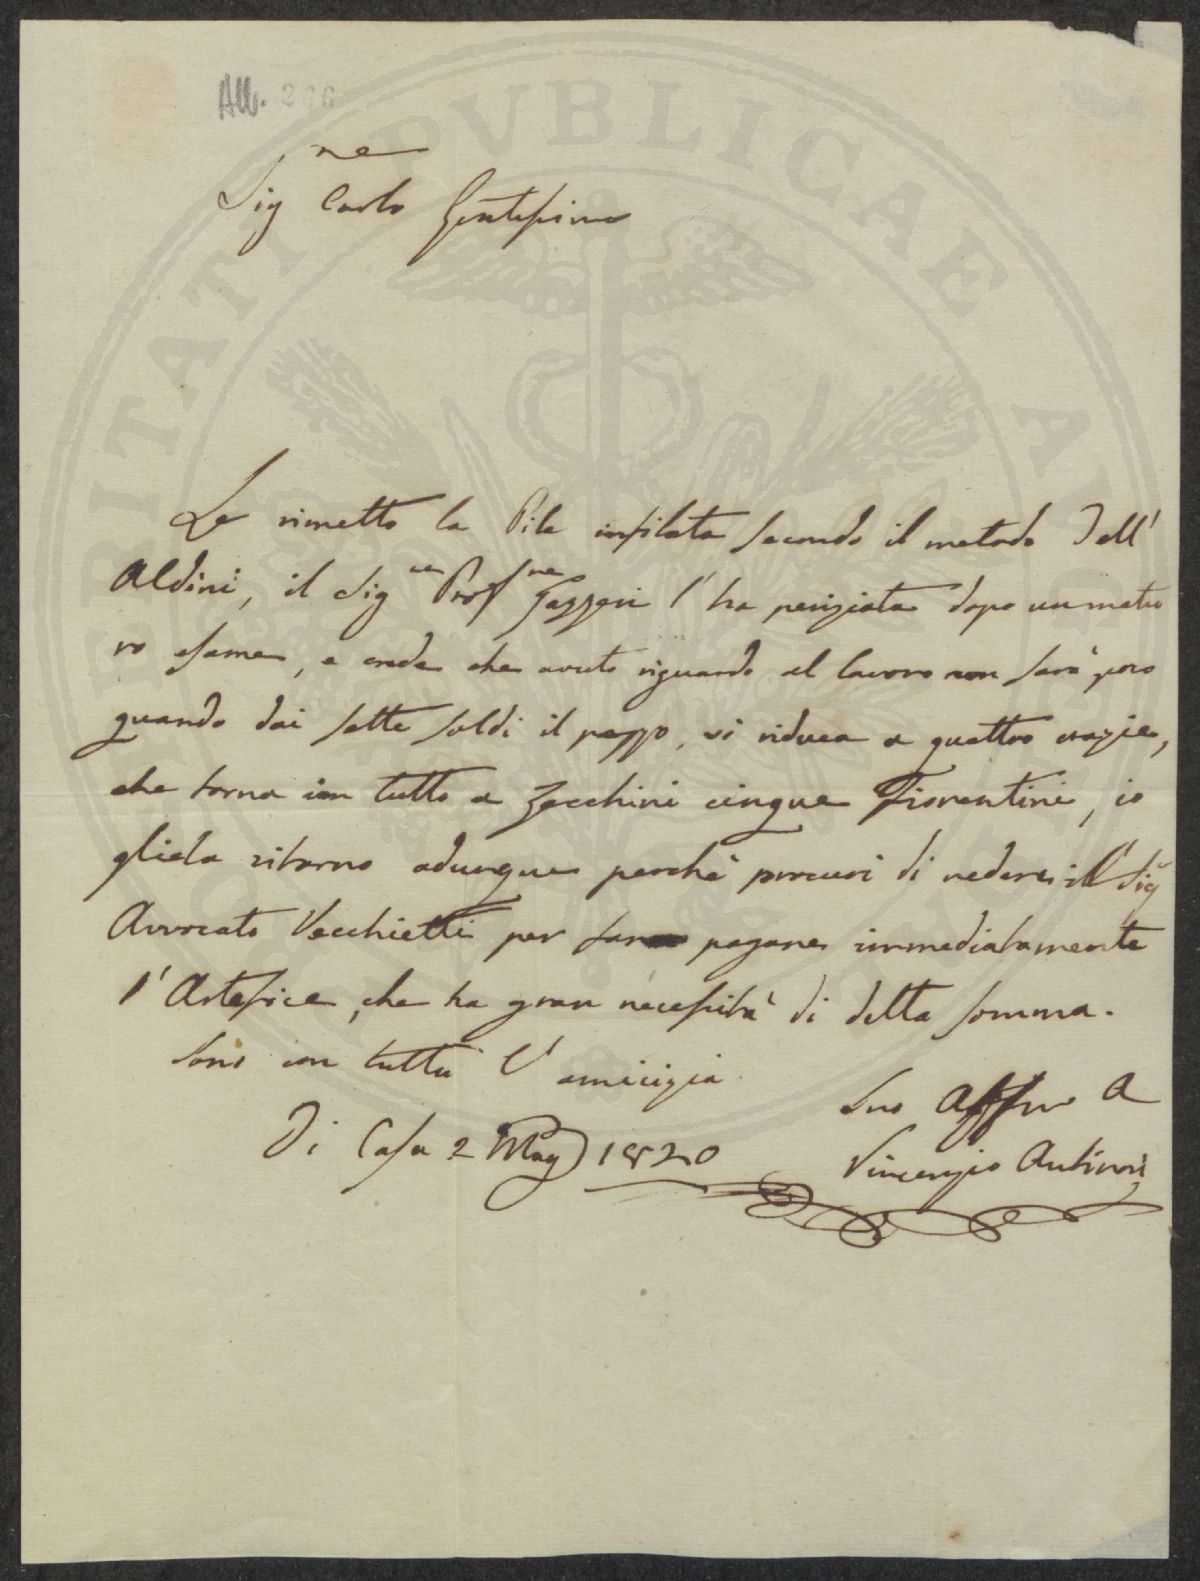 All. 206
Sig.ne Carlo Gentilissimo
Le rimetto la Pila infilata secondo il metodo dell'
Aldini, il Sig.re Prof.re Gazzeri l'ha periziata dopo un matu
ro esame, e crede che avuto riguardo al lavoro non sarà poco
quando dai sette soldi il pezzo, si riduca a quattro crazie,
che torna in tutto a Zecchini cinque Fiorentini, io
gliela ritorno adunque perchè procuri di vedere il Sig.
Avvocato Vecchietti per far pagare immediatamente
l'Artefice, che ha gran necessità di detta somma.
Sono con tutta l'amicizia
Suo Affmo A
Di Casa 2 Mag 1820
Vincenzio Antinori